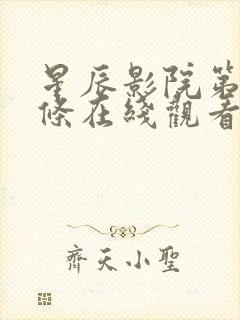 星辰影院第
條在綫觀看
齊天小聖